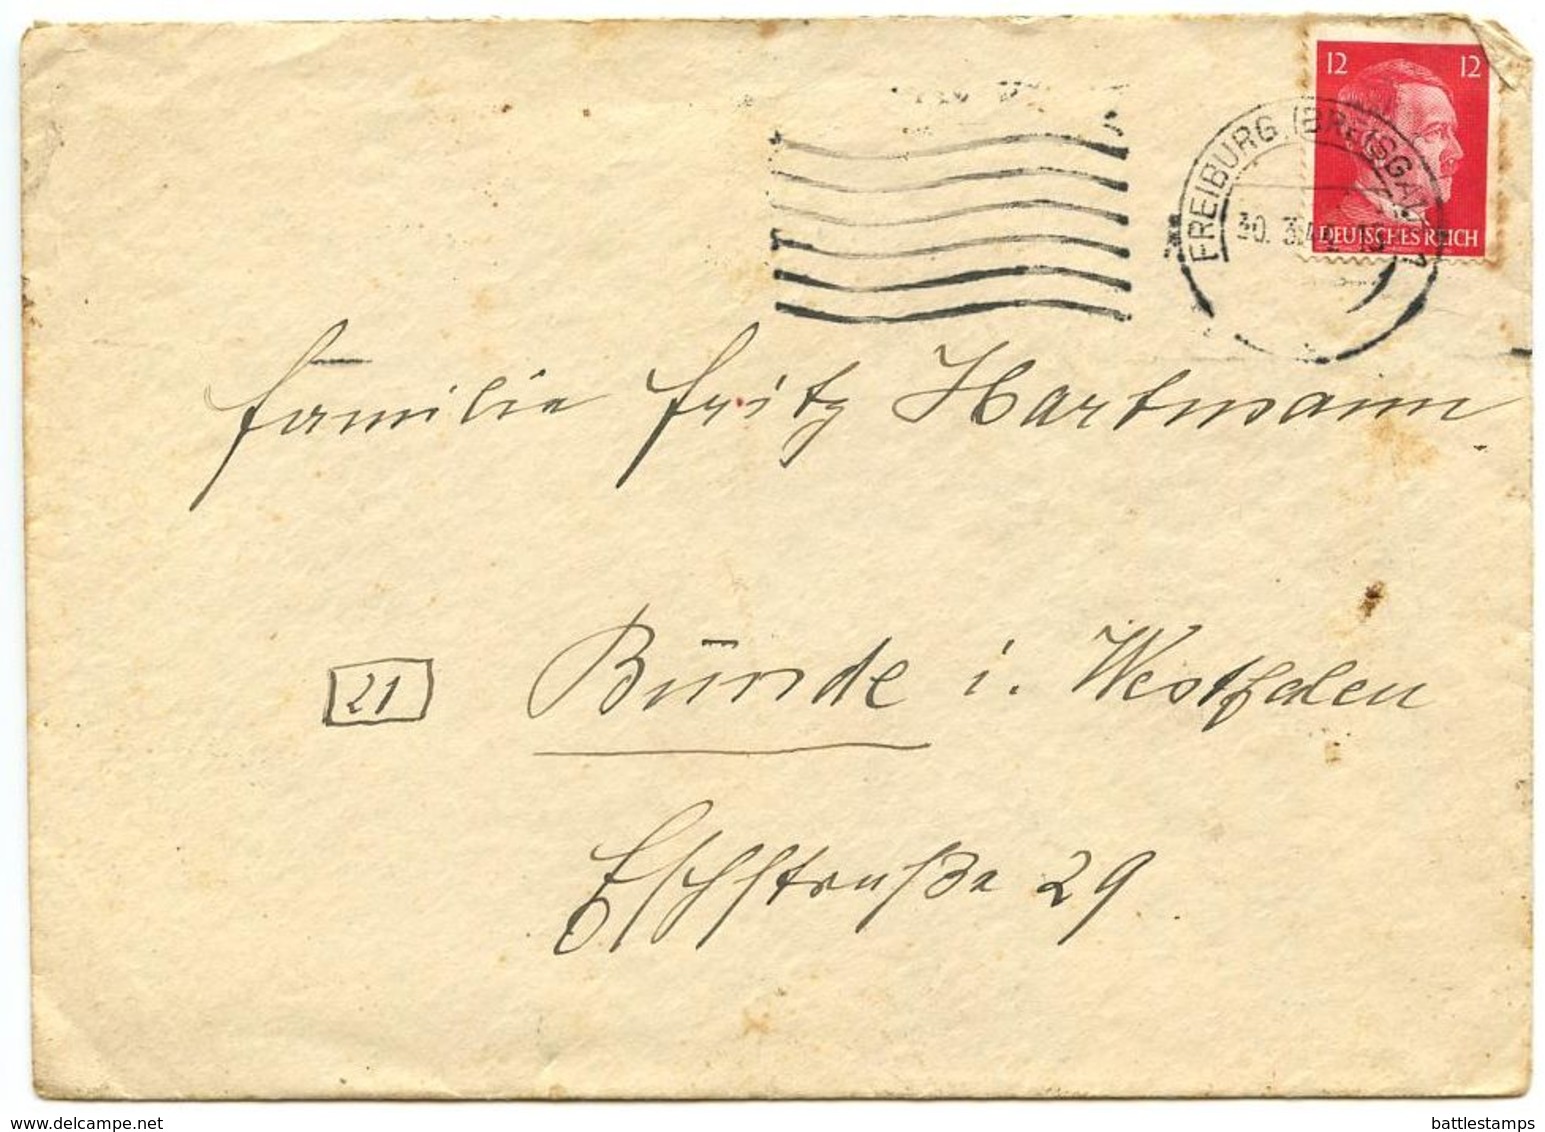 12 12
DEUTSCHES REICH
FREIBURG (BREISGAU) 1
Familie Fritz Hartmann
21 Bünde i. Westfalen
Eschstraße 29
delcampe.net
battlestamps